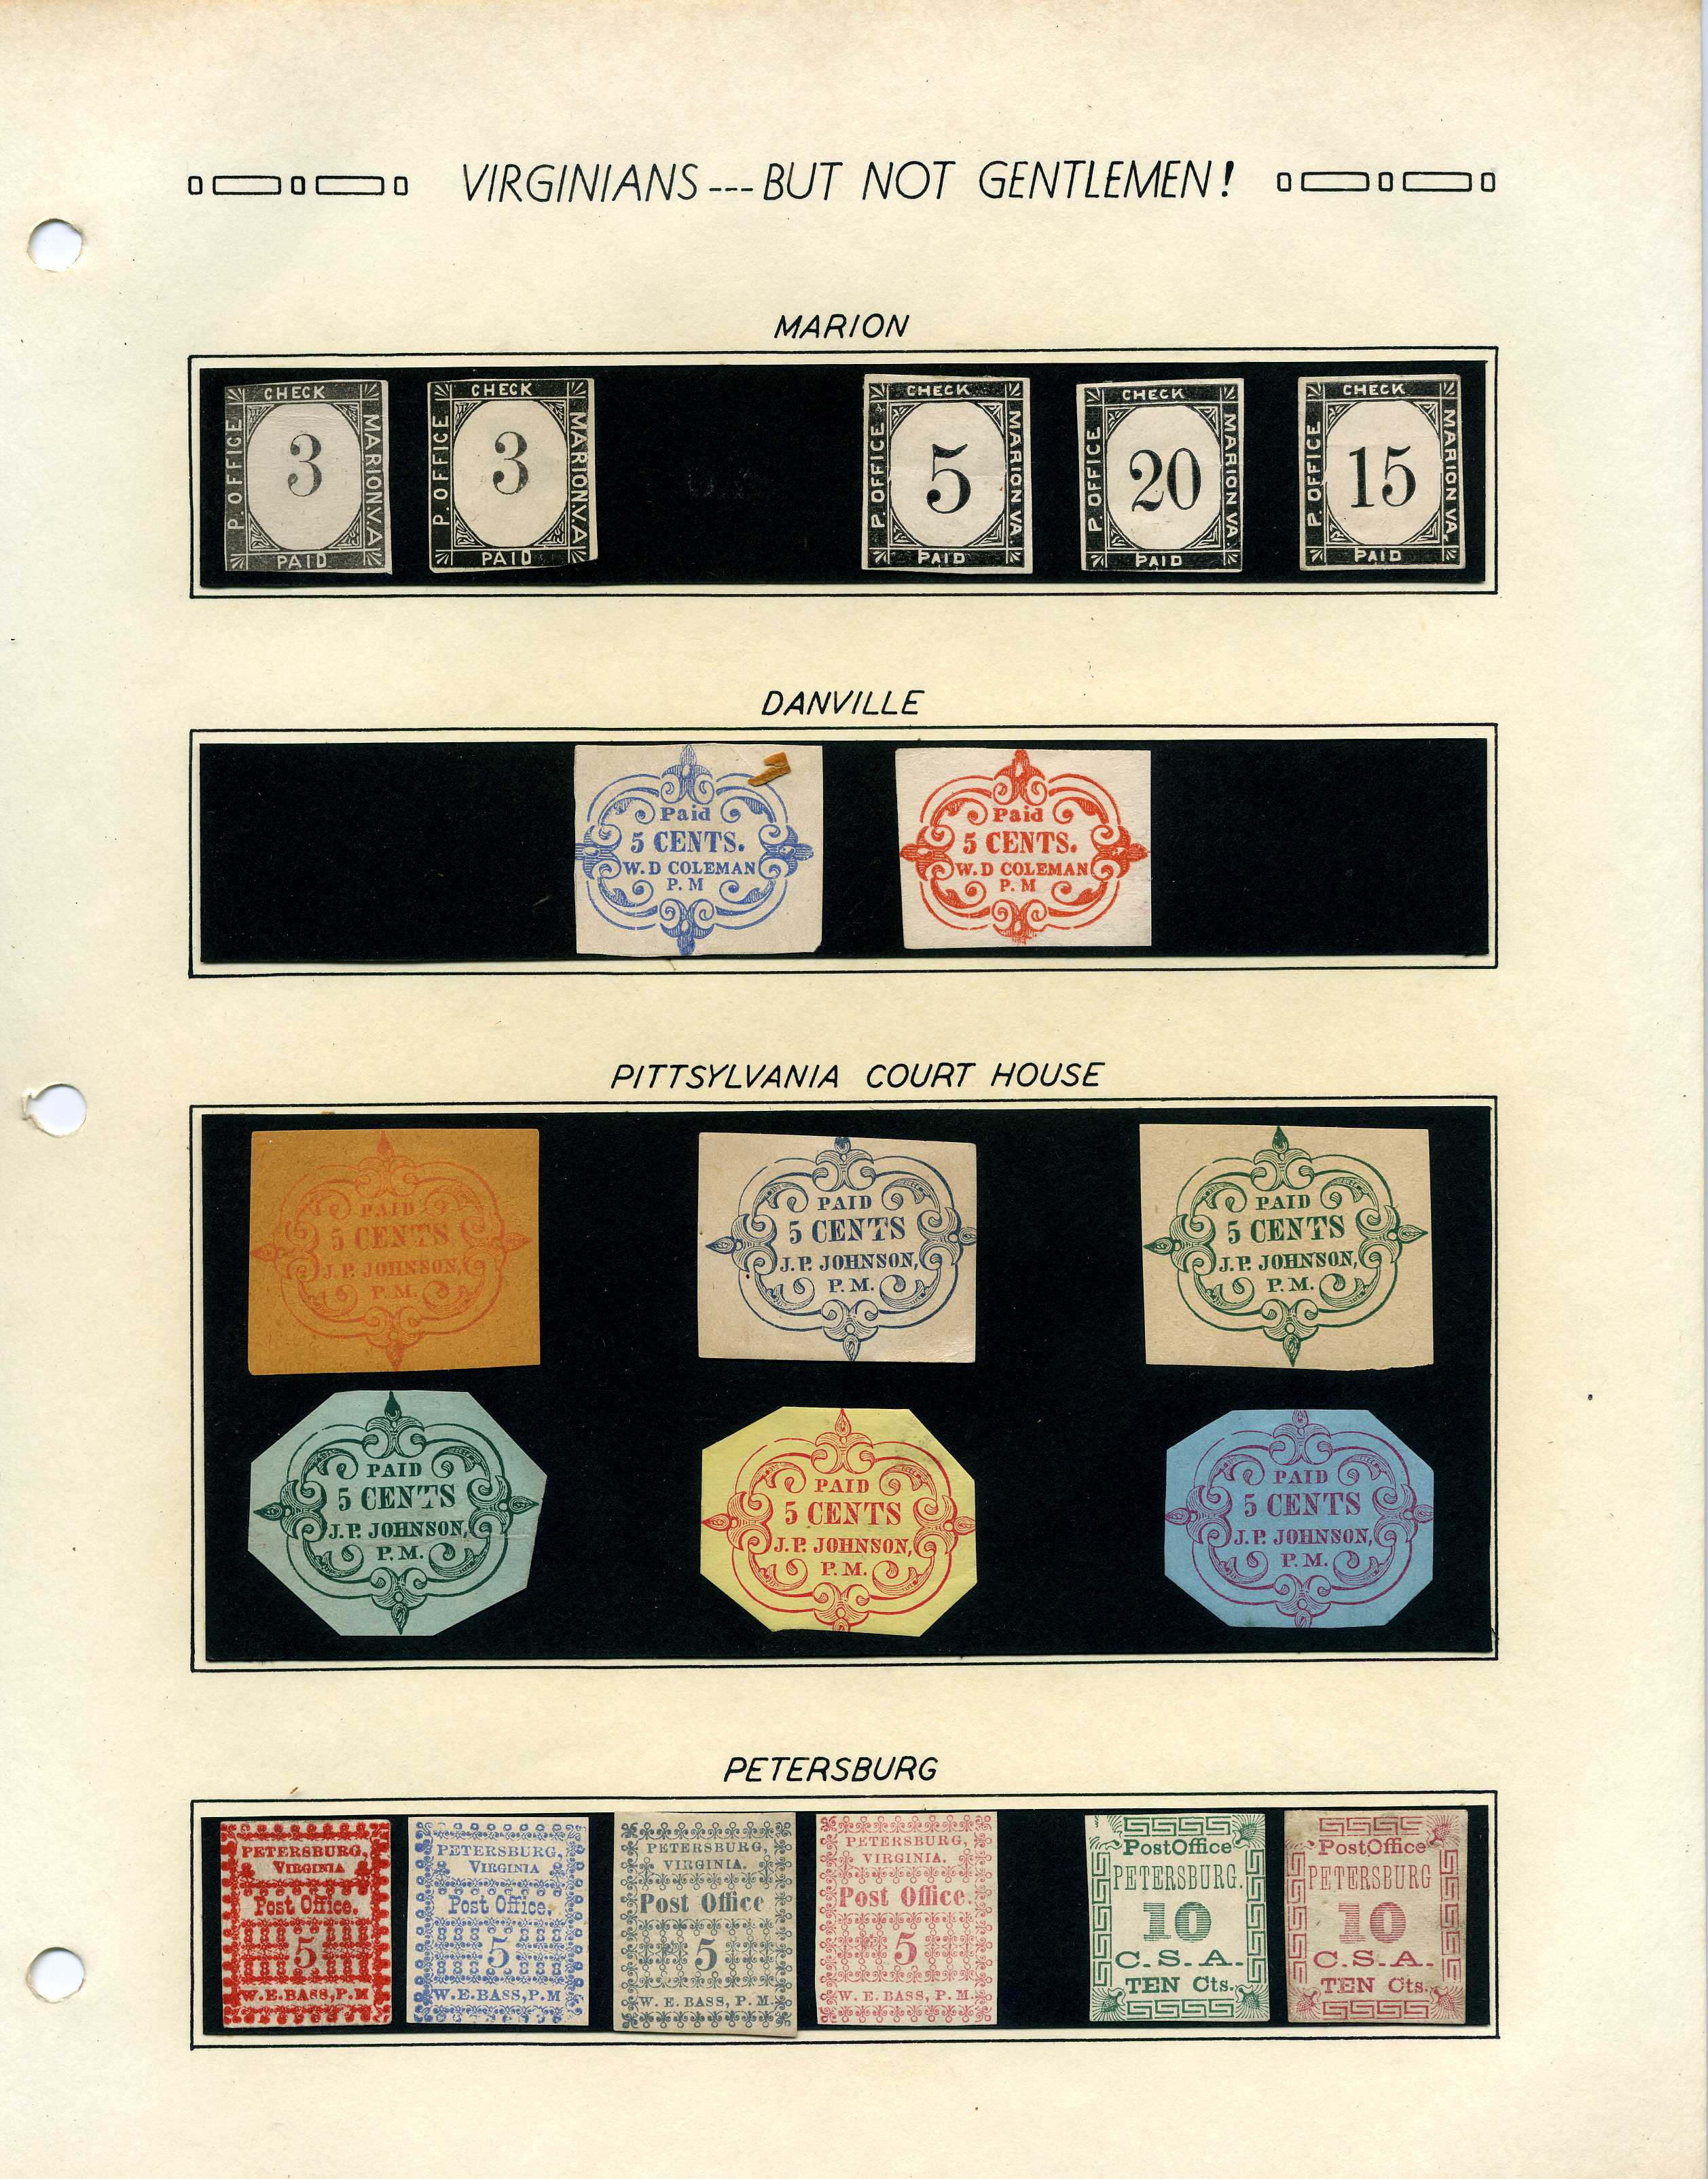 VIRGINIANS---BUT NOT GENTLEMEN!
MARION
CHECK
P. OFFICE
3
MARION VA
PAID
CHECK
P. OFFICE
3
MARION VA
PAID
CHECK
P. OFFICE
5
MARION VA.
PAID
CHECK
P. OFFICE
20
MARION VA.
PAID
CHECK
P. OFFICE
15
MARION VA.
PAID
DANVILLE
Paid
5 CENTS.
W.D COLEMAN
P. M
Paid
5 CENTS.
W.D COLEMAN
P. M
PITTSYLVANIA COURT HOUSE
PAID
5 CENTS
J.P. JOHNSON,
P.M.
PAID
5 CENTS
J.P. JOHNSON,
P.M.
PAID
5 CENTS
J.P. JOHNSON,
P.M.
PAID
5 CENTS
J.P. JOHNSON,
P.M.
PAID
5 CENTS
J.P. JOHNSON,
P.M.
PAID
5 CENTS
J.P. JOHNSON,
P.M.
PETERSBURG
PETERSBURG,
VIRGINIA
Post Office.
5
W.E.BASS,P.M
PETERSBURG,
VIRGINIA
Post Office.
5
W.E.BASS,P.M
PETERSBURG,
VIRGINIA.
Post Office
5
W. E. BASS, P. M.
PETERSBURG,
VIRGINIA.
Post Office.
5
W. E. BASS, P. M.
PostOffice
PETERSBURG.
10
C.S.A.
TEN Cts.
PostOffice
PETERSBURG
10
C.S.A.
TEN Cts.